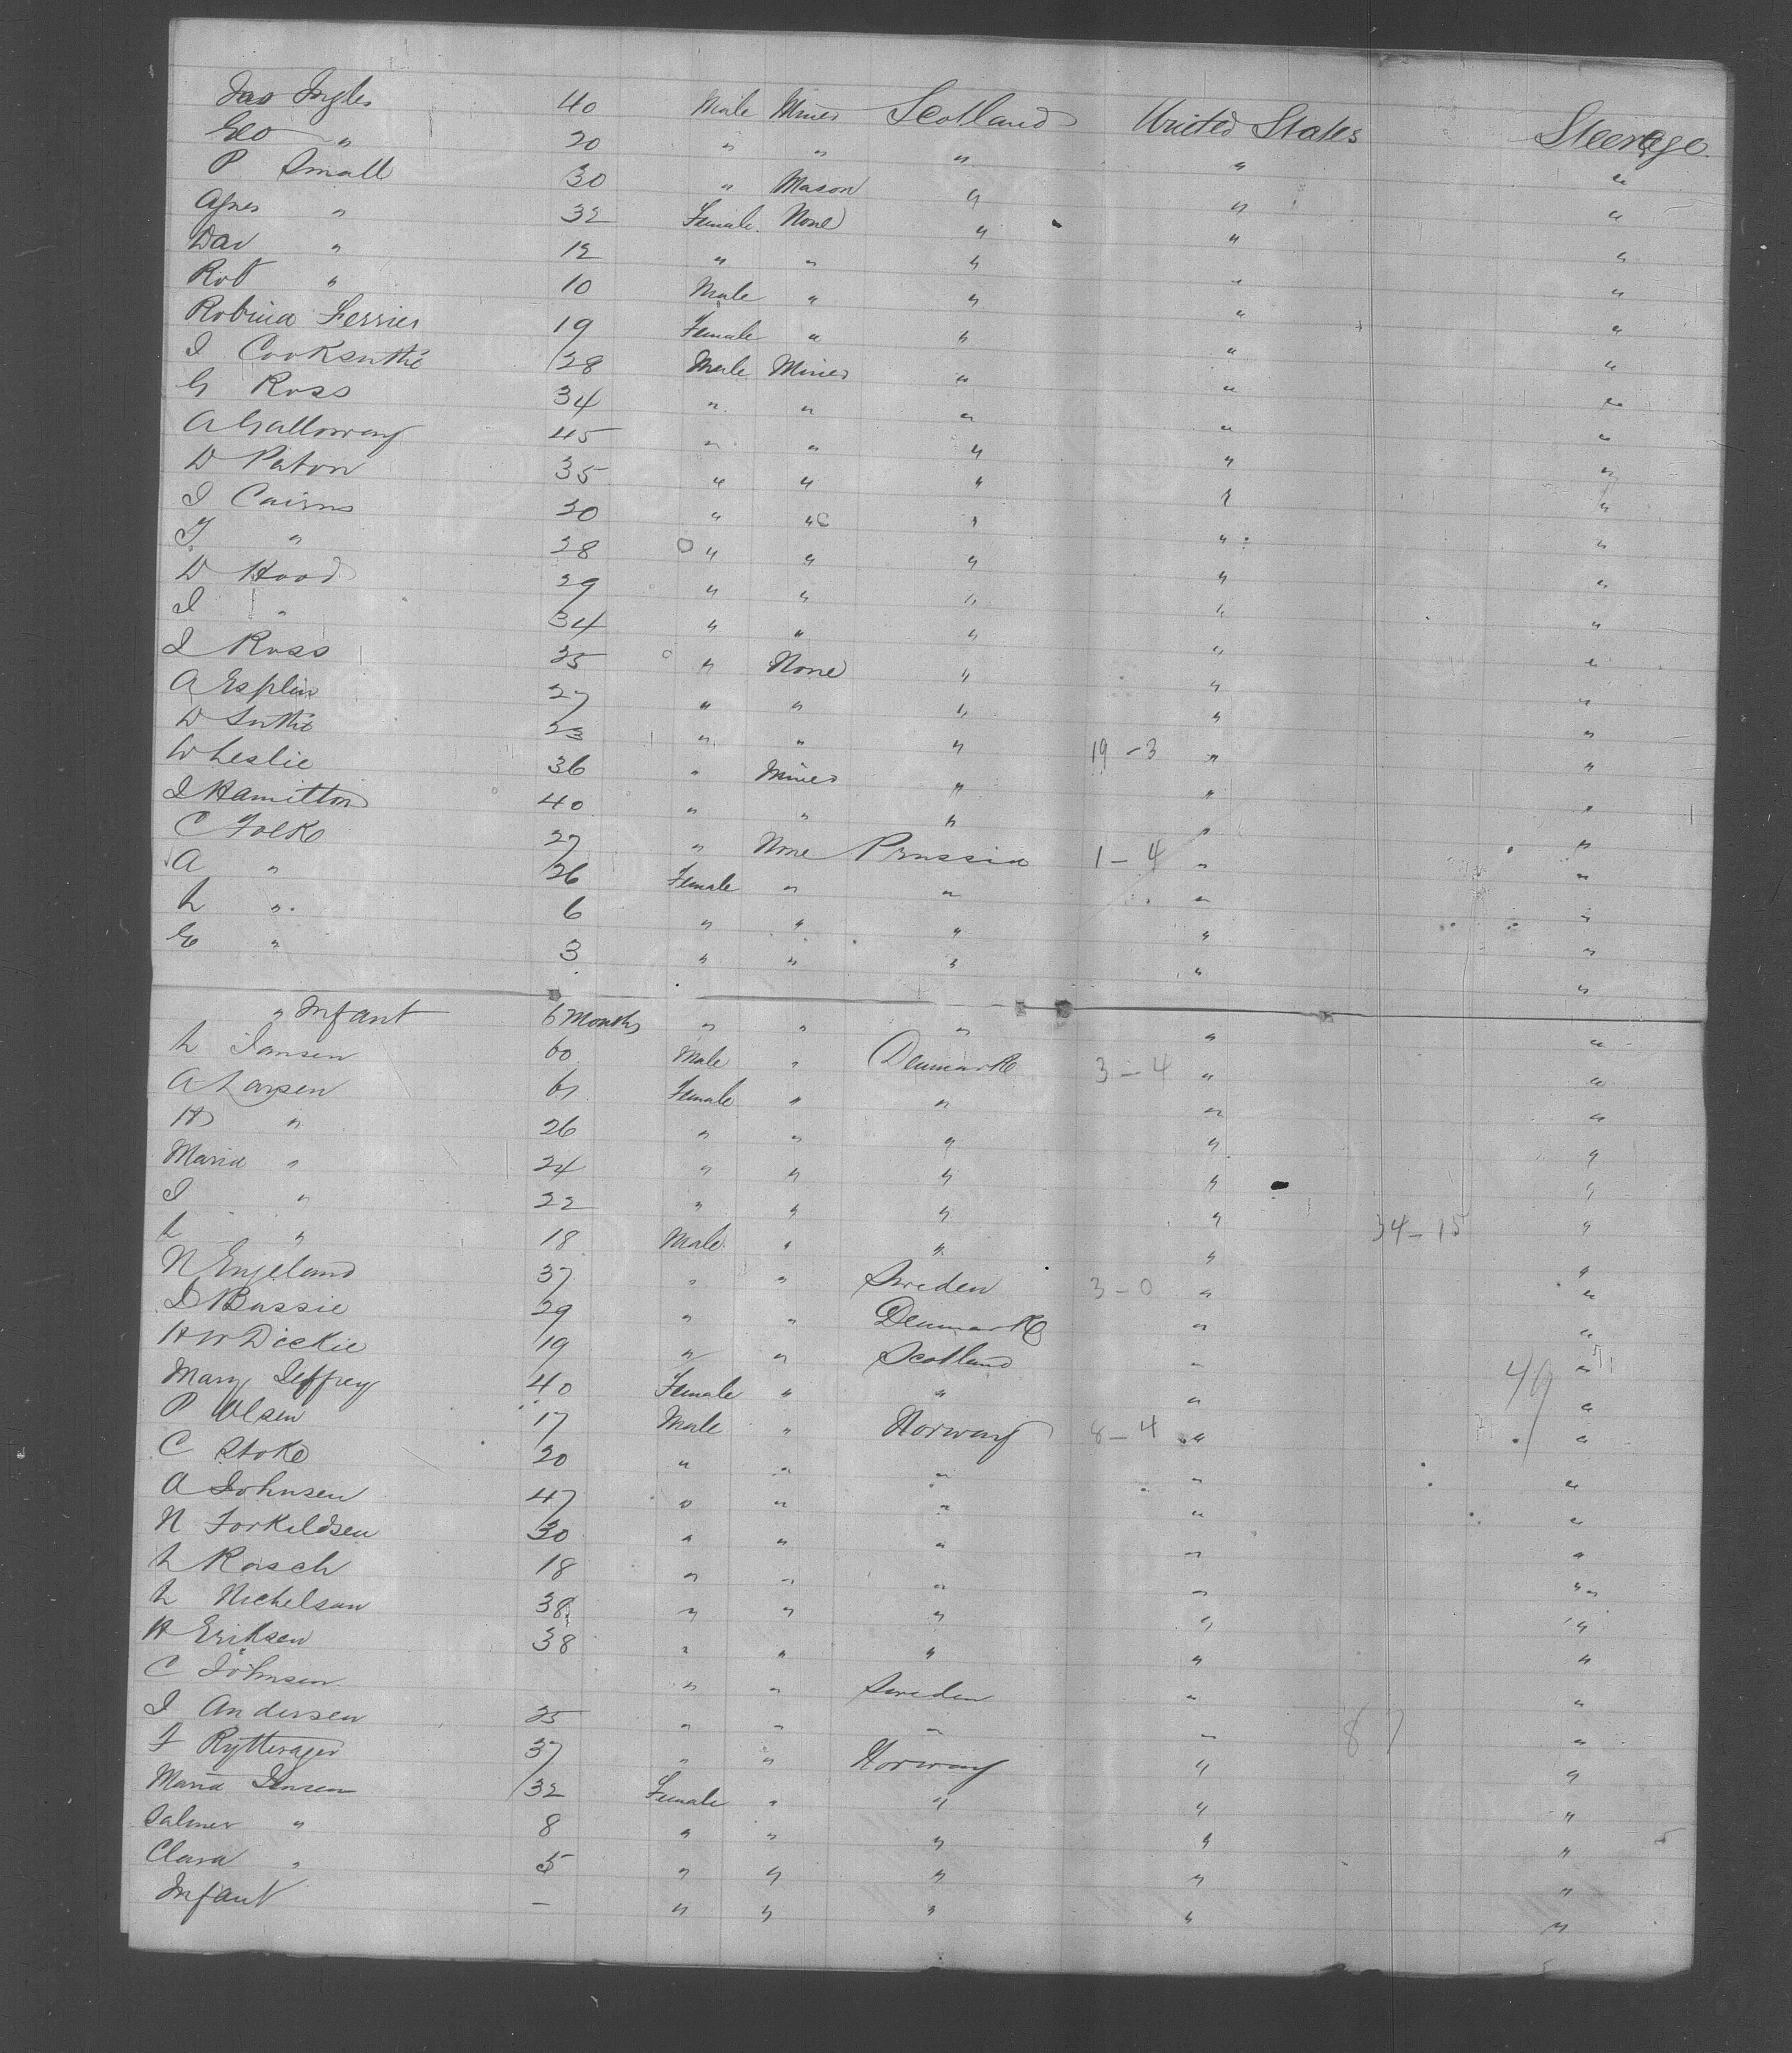 Jas Ingles 40 Male Miner Scotland United States Steerage
Geo " 20 " " " " "
P Small 30 " Mason " " "
Agnes " 32 Female None " " "
Dav " 12 " " " " "
Rob " 10 Male " " " "
Robina Ferrier 19 Female " " " "
J Cooksuthie 28 Male Miner " " "
G Ross 34 " " " " "
A Galloway 45 " " " " "
D Paton 35 " " " " "
J Cairns 30 " " " " "
T " 28 " " " " "
D Hood 29 " " " " "
J " 34 " " " " "
J Ross 25 " None " " "
A Esplin 27 " " " " "
D Suthie 23 " " " 19-3 " "
W Leslie 36 " Miner " " "
J Hamilton 40 " " " " "
C Folke 27 " None Prussia 1-4 " "
A " 26 Female " " " "
L " 6 " " " " "
E " 3 " " " " "
" Infant 6 Months " " " " "
L Jansen 60 Male " Denmark 3-4 " "
A Larsen 61 Female " " " "
H " 26 " " " " "
Maria " 24 " " " " "
J " 22 " " " " "
L " 18 Male " " " 34-15 "
N Engeland 37 " " Sweden 3-0 " "
D Bassie 29 " " Denmark " "
H W Dickie 19 " " Scotland " "
Mary Jeffrey 40 Female " " " 49 "
P Olsen 17 Male " Norway 8-4 " "
C Stoke 20 " " " " "
A Johnsen 47 " " " " "
N Torkildsen 30 " " " " "
L Rasch 18 " " " " "
L Nickelsan 38 " " " " "
H Eriksen 38 " " " " "
C Johnsen " " Sweden " "
J Andersen 25 " " " " 8 "
F Rytterager 37 " " Norway " "
Maria Jensen 32 Female " " " "
Salmer " 8 " " " " "
Clara " 5 " " " " "
Infant - " " " " "